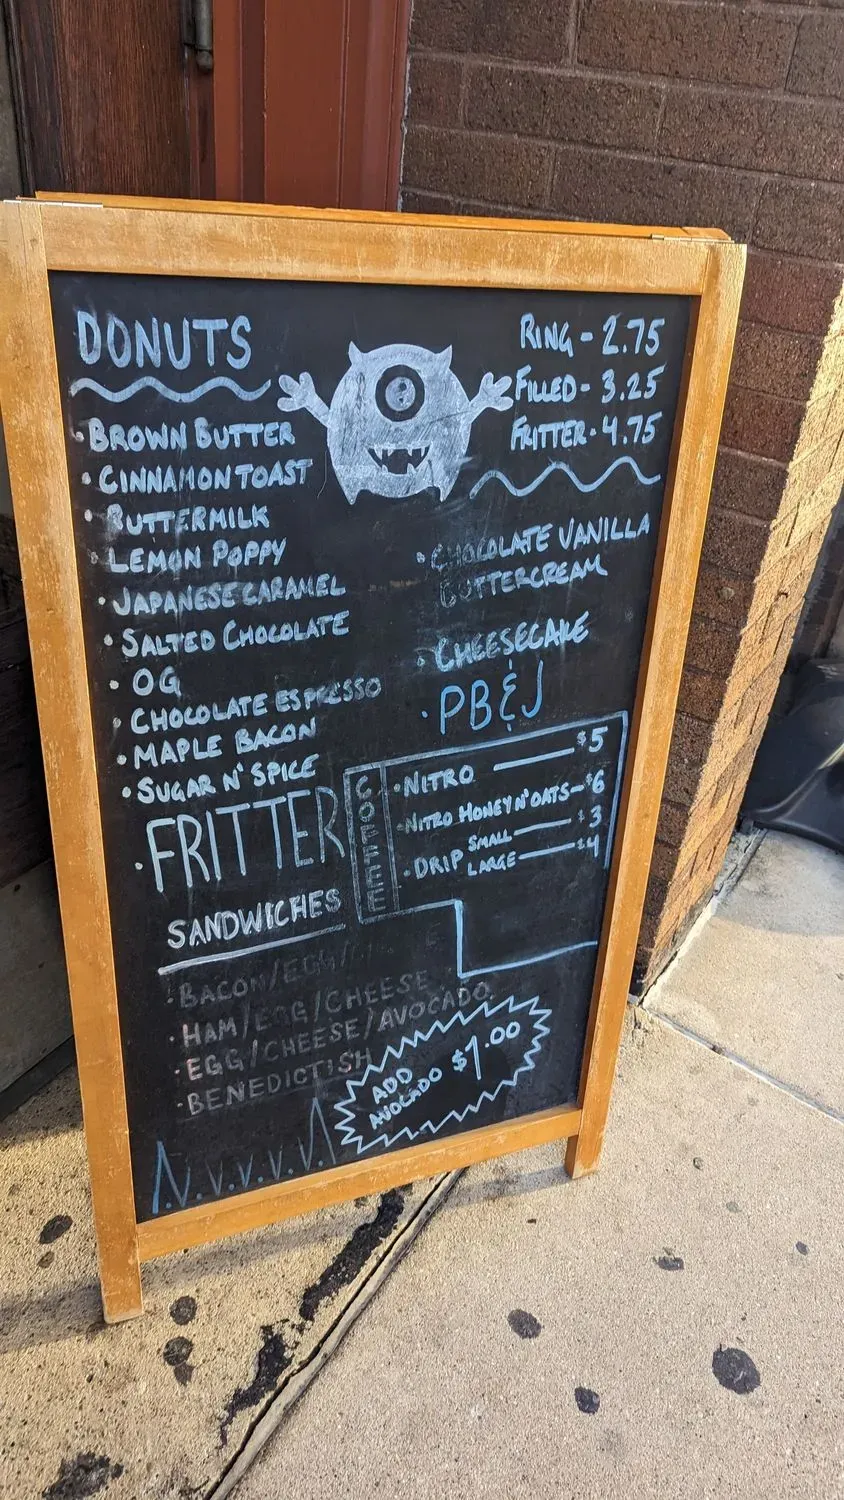 DONUTS
• BROWN BUTTER
• CINNAMON TOAST
• BUTTERMILK
LEMON POPPY
• JAPANESE CARAMEL
• SALTED CHOCOLATE
• OG
• CHOCOLATE ESPRESSO
• MAPLE BACON
• SUGAR N' SPICE
• FRITTER
RING - 2.75
FILLED - 3.25
FRITTER - 4.75
• CHOCOLATE VANILLA
BUTTERCREAM
• CHEESECAKE
• PB&J
COFFEE
• NITRO — $5
• NITRO HONEY N' OATS — $6
• DRIP SMALL — $3
LARGE — $4
SANDWICHES
• BACON/EGG/
• HAM/EGG/CHEESE
• EGG/CHEESE/AVOCADO
• BENEDICTISH
ADD
AVOCADO $1.00